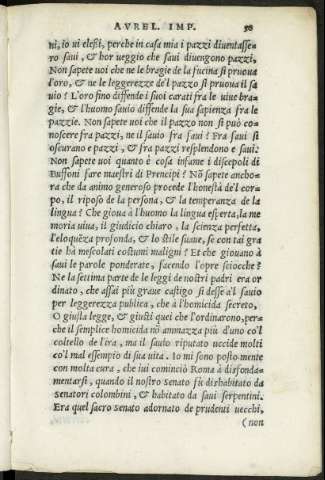 AVREL. IMP. 58
ni, io vi elessi, perche in casa mia i pazzi diuentasse-
ro saui, & hor ueggio che saui diuengono pazzi,
Non sapete uoi che ne le bragie de la fucina si pruoua
l'oro, & ne le leggerezze de'l pazzo si pruoua il sa
uio? L'oro fino diffende i suoi carati fra le uiue bra-
gie, & l'huomo sauio diffende la sua sapienza fra le
pazzie. Non sapete uoi che il pazzo non si può co-
noscere fra pazzi, ne il sauio fra saui? Fra saui si
oscurano e pazzi, & fra pazzi resplendono e saui.
Non sapete uoi quanto è cosa infame i discepoli di
Buffoni fare maestri di Prencipi? Nõ sapete ancho-
ra che da animo generoso procede l'honestà de'l cor-
po, il riposo de la persona, & la temperanza de la
lingua? Che gioua à l'huomo la lingua esperta, la me
moria uiua, il giudicio chiaro, la scienza perfetta,
l'eloquẽza profonda, & lo stile suaue, se con tai gra
tie hà mescolati costumi maligni? Et che giouano à
saui le parole ponderate, facendo l'opre sciocche?
Ne la settima parte de le leggi de nostri padri era or
dinato, che assai più graue castigo si desse à'l sauio
per leggerezza publica, che à l'homicida secreto,
O giusta legge, & giusti quei che l'ordinarono, per-
che il semplice homicida nõ ammazza più d'uno co'l
coltello de l'ira, ma il sauio riputato uccide molti
co'l mal essempio di sua uita. Io mi sono posto mente
con molta cura, che iui cominciò Roma à disfonda-
mentarsi, quando il nostro senato fù dishabitato da
senatori colombini, & habitato da saui serpentini.
Era quel sacro senato adornato de prudenti uecchi,
(non